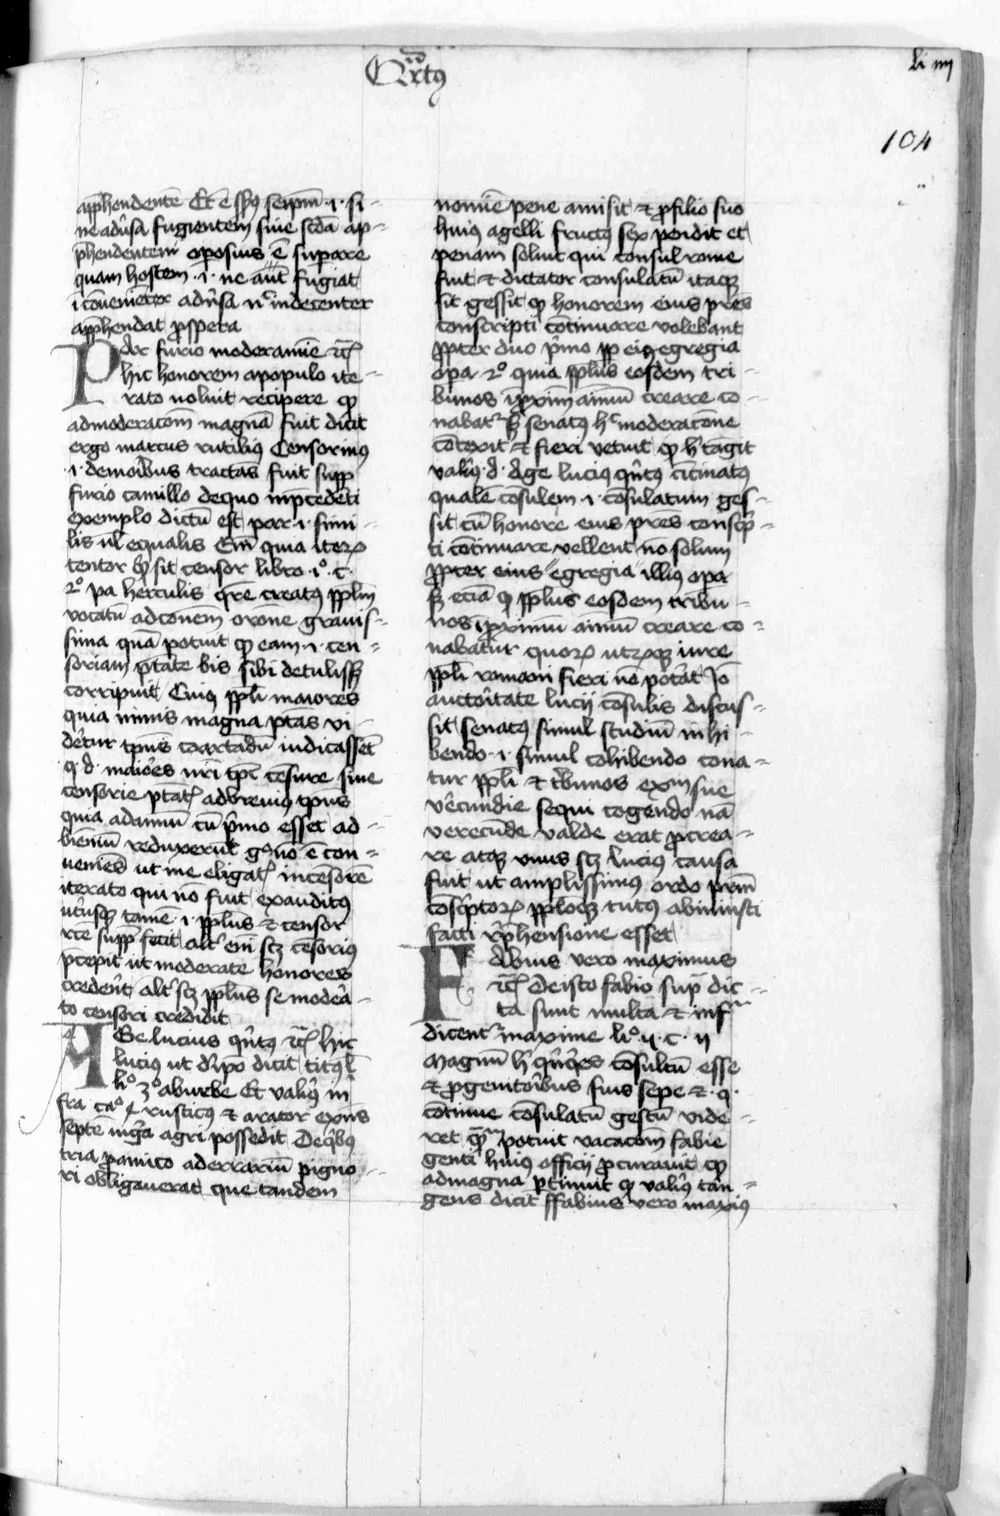 Qrtus
li iiij
104
apphendente Et e sps seipm .i. si-
ne adusa fugientem sine scda ap-
phendentem operosius e superare
quam hostem .i. ne aut fugiat
icoueniet adusa nec indecenter
apphendat prospera
Par furio moderamie etc
hic honorem apopulo ite-
rato noluit recipere quod
admoderacom magna fuit dicit
ergo marcus rutilius Censorinus
.i. demoribus tractans fuit supp
furio camillo dequo inprecedeti
exemplo dictu est par .i. simi-
lis ul equalis Eni quia iteru
censor sit censor libro .io. c.
2o pa herculis qre creatus pplm
vocatu adconem orone grauis-
sima qua potuit quod eam .i. cen-
soriam ptate bis sibi detulisset
corripuit Cuius ppli maiores
quia nimis magna ptas vi-
detur tpus coartadu iudicasset
q.d. maiores nri tpr censure siue
censorie ptatis adbreuius tpus
quia adannu cu primo esset ad-
bieniu reduxerut go no e con-
ueniens ut me eligatis incensore
iterato qui non fuit exauditus
utrusque tamen .i. pplus et censor
recte supp fecit alter eni scz censorius
precepit ut moderate honores
crederet alter scz pplus se modera-
to censori credidit
AGe lucius quitus etc hic
lucius ut dixpo dicit titus l
lio 3o aburbe Et valius in
fra cao 4 rusticus et arator exns
septe iugra agri possedit Dequibus
tria proamico aderrariu pigno-
ri obligauerat que tandem
nomie pene amisit et profilio suo
huius agelli fructus sex perdit et
penam soluit qui consul rome
fuit et dictator consulatu itaque
sic gessit quod honorem eius pres
conscripti continuare volebant
propter duo primo pp eius egregia
opera 2o quia pplus eosdem tri-
bunos iproximu annu creare co-
nabatur sed senatus hec moderacone
correxit et fieri vetuit quod hic tangit
valius .d. Age lucius quitus cicinatus
quale consulem .i. consulatum ges-
sit cu honore eius pres conscrip-
ti continuare vellent no solum
propter eius egregia illius opera
sed etia quod pplus eosdem tribu-
nos iproximu annu creare co-
nabatur quoru utrumque iure
ppli romani fieri no poterat Io
auctoritate lucij consulis discus-
sit senatus simul studiu inhi-
bendo .i. simul cohibendo cona-
tur ppli et tribunos exm sue
verecundie sequi cogendo na
verecude valde erat procrea-
re atque unus scz lucius causa
fuit ut amplissimus ordo prim
conscriptoru pploque tutus abiniusti
facti reprehensione esset
Fabius vero maximus
etc Deisto fabio supra dic-
ta sunt multa et infra
dicentur maxime lio .ij. c. ij
Magnu hic quinquies consultu esse
et progenitoribus suis sepe et .q.
continue consulatu gestu vide-
ret quam potuit vacacom fabie
genti huius officij procurauit quod
admagna pertinuit quod valius tan-
gens dicit ffabius vero maxius